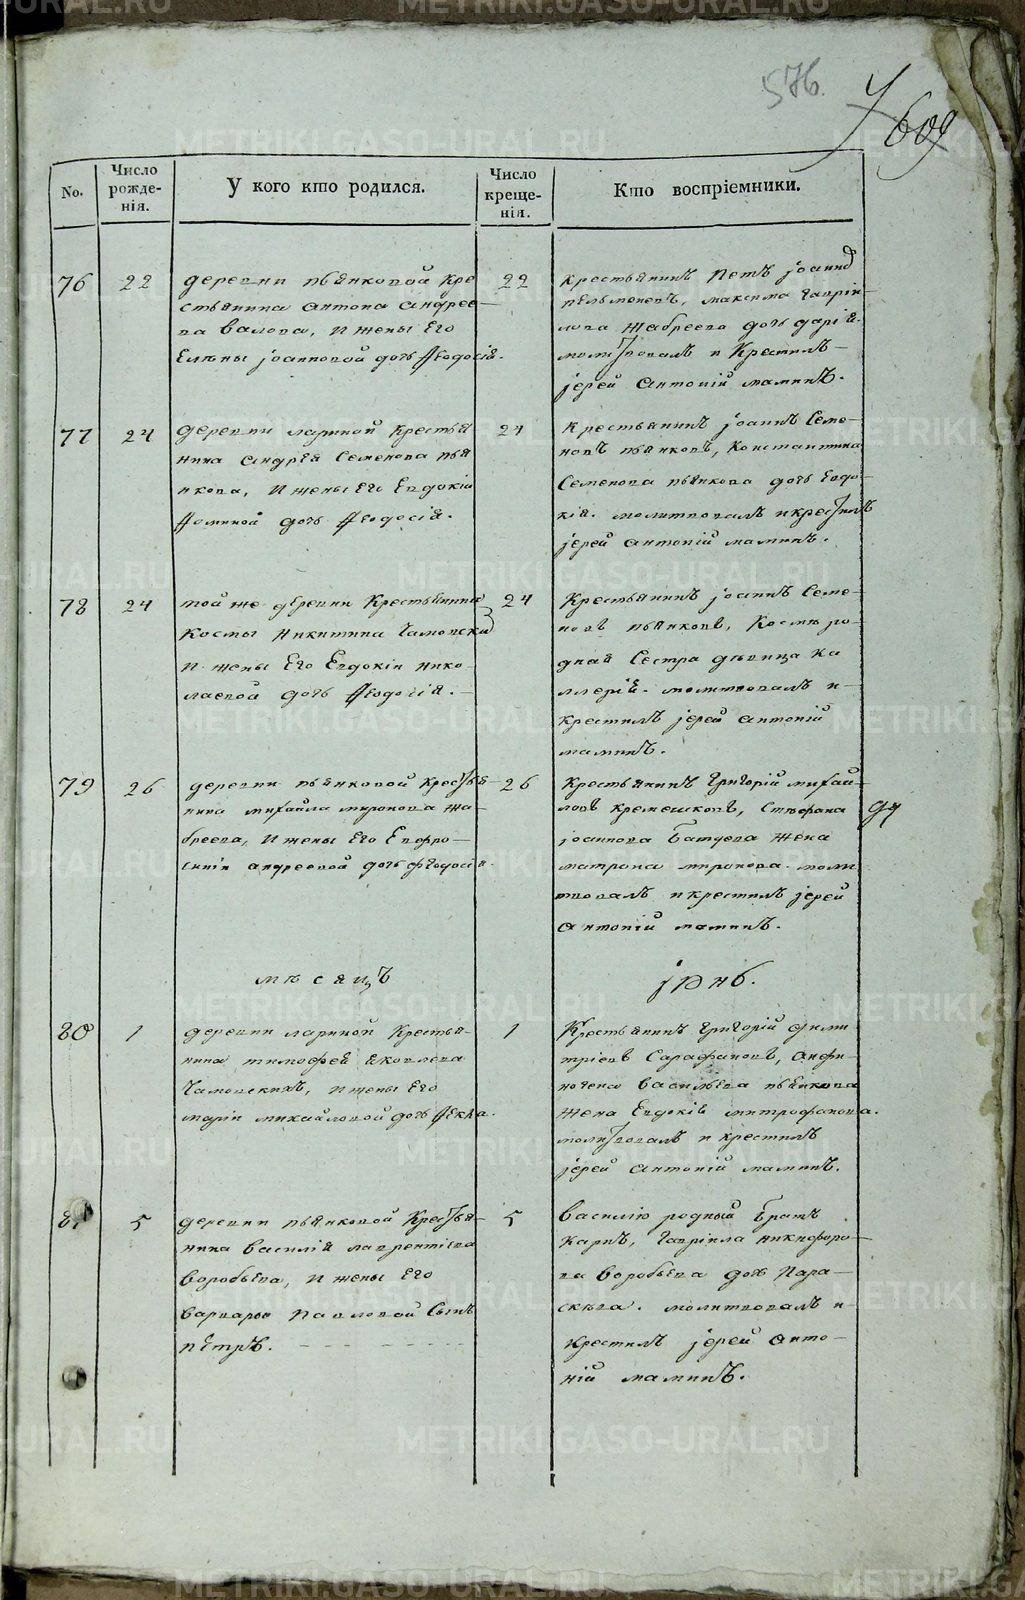 576.
609
No.
Число рожде-нія.
У кого кто родился.
Число креще-нія.
Кто воспріемники.
76
22
деревни пьянковой кре
стьянина антона андрее-
ва валова, и жены его
елены іоанновой дочь Ѳеодосія.
22
крестьянинъ Петъ іоанно
пельменевъ, максима гаврін-
лова жабреева дочь дарія.
молитвовалъ и крестилъ-
іерей антоній маминъ.
77
24
деревни лариной крестья
нина андрея семенова пья
нкова, и жены его евдокіи
Ѳоминой дочь Ѳеодосія.
24
крестьянинъ іоаннъ семе-
новъ пьянковъ, константина
семенова пьянкова дочь евдо-
кія. молитвовалъ и крестилъ
іерей антоній маминъ.
78
24
той же деревни крестьянина
космы никитина чамовски
и жены его евдокіи нико-
лаевой дочь Ѳеодосія.-
24
крестьянинъ іоаннъ семе-
новъ пьянковъ, космы ро-
дная сестра девица ка
ллерія. молитвовалъ и-
крестилъ іерей антоній
маминъ.
79
26
деревни пьянковой крестья-
нина михаила миронова жа-
бреева, и жены его евфро-
синіи андреевой дочь Ѳеодосія.
26
крестьянинъ григорій михай-
ловъ кремешковъ, стефана
іоаннова батуева жена
матрона миронова. моли
твовалъ и крестилъ іерей
антоній маминъ.
мѣсяцъ
іюнь.
80
1
деревни лариной крестья-
нина тимофея яковлева
чамовскихъ, и жены его
маріи михайловой дочь Ѳекла.
1
крестьянинъ григорій дими-
тріевъ сарафановъ, анфи-
ногена васильева пьянкова
жена евдокія митрофанова.
молитвовалъ и крестилъ
іерей антоній маминъ.
81
5
деревни пьянковой крестья-
нина василія лаврентіева
воробьева, и жены его
варвары павловой сынъ
петръ.
5
василію родный братъ
карпъ, гавріила никифоро-
ва воробьева дочь пара-
скева. молитвовалъ и-
крестилъ іерей анто-
ній маминъ.
METRIKI.GASO-URAL.RU